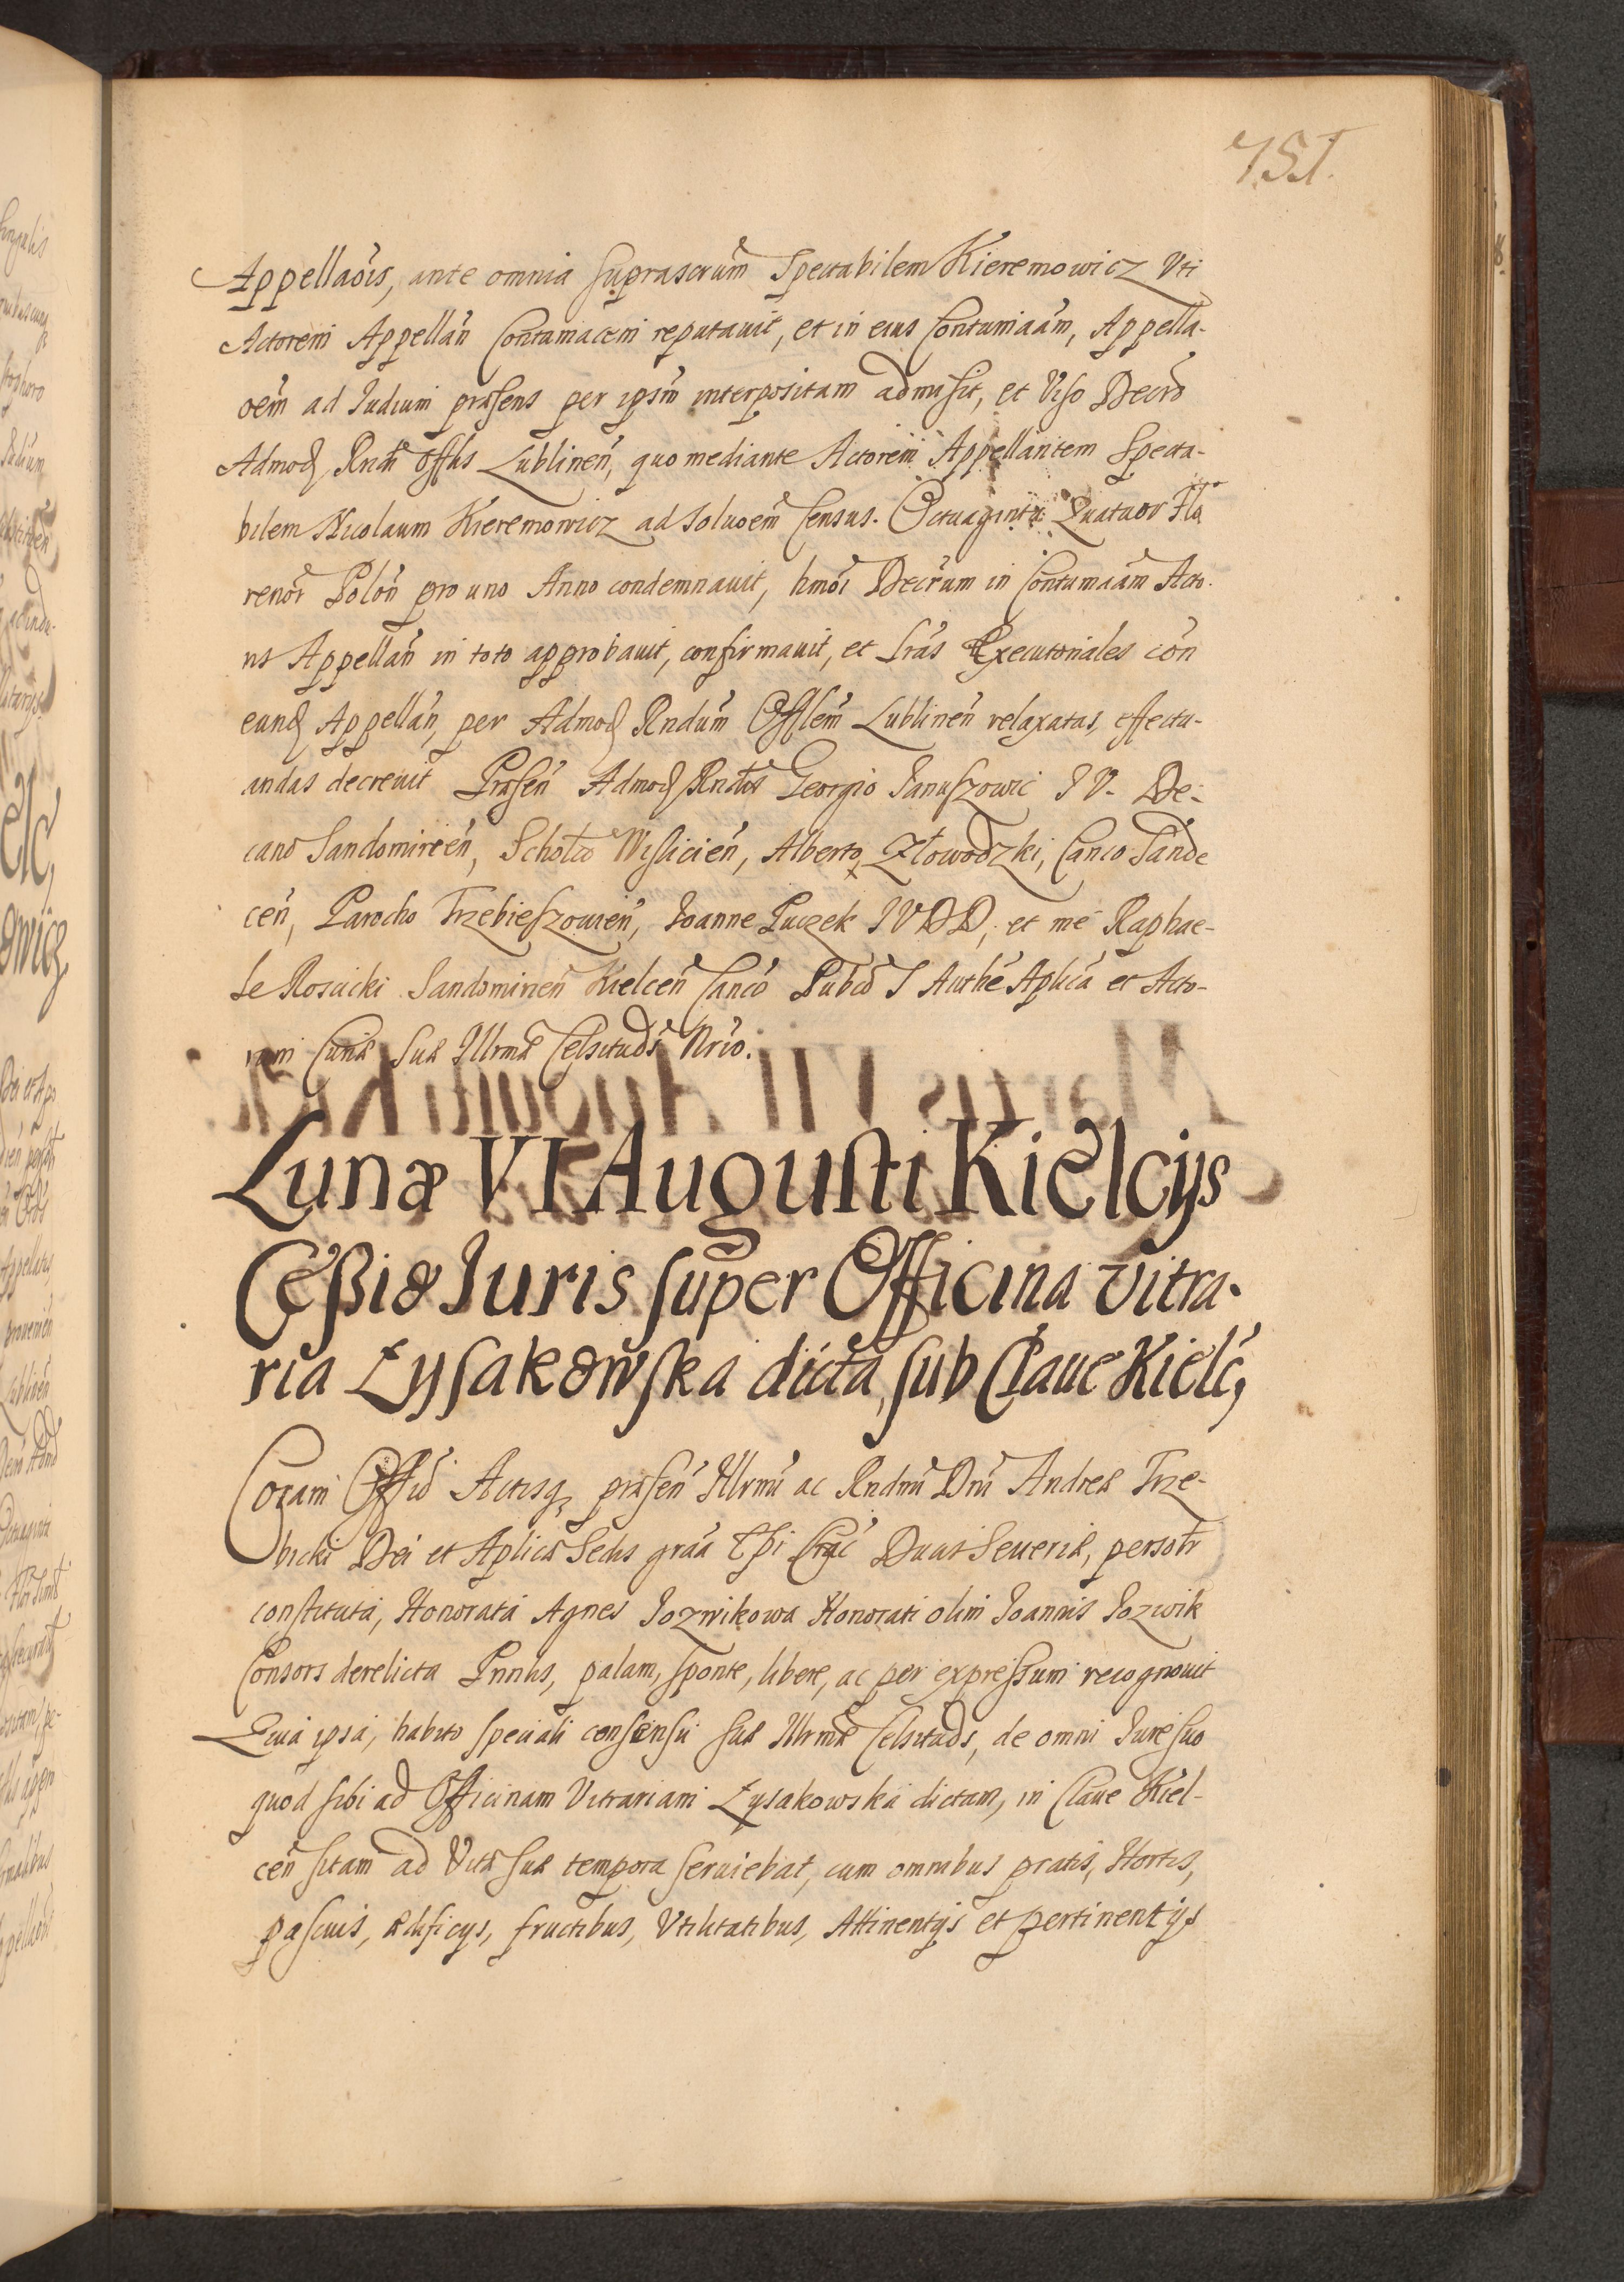 751.
Appellaõis, ante omnia suprascrũm Spectabilem Kieremowicz Vti
Actorem Appellañ Contumacem reputauit, et in eius Contumaãm, Appella-
oẽm ad Iudium præsens per ipsm̃ interpositam admisit, et Viso Decrõ
Admoḍ Rndi Offlis Lublineñ, quo mediante Actorem Appellantem Specta-
bilem Nicolaum Kieremowicz ad Soluoẽm Census. Octuaginta Quatuor Flo
renor̃ Poloñ pro uno Anno condemnauit, hmõi Decr̃um in Contumaãm Acto-
ris Appellañ in toto approbauit, confirmauit, et Lr̃as Executoriales coñ
eund Appellañ, per Admod Rndum Offlem̃ Lublineñ relaxatas, effectu-
andas decreuit Præseñ Admod Rndis Georgio Januszowic I V. De-
cano Sandomirieñ, Scholco Wisliciẽn, Alberto Złowodzki, Canco Sande
ceñ, Parocho Trzebieszowieñ, Ioanne Puczek I V D D, et me Raphae-
le Rosicki Sandomirieñ Kielceñ Cancõ Pubcõ S Authẽ Aplicã et Acto-
rum Curiæ Suæ Illrmæ Celsituds Nrio.
Lunæ VI Augusti Kielcijs
Ceßio Iuris super Officina vitra-
ria Łysakowska dicta, sub Claue Kielc,
Coram Offiõ Actisq præseñ Illrmi ac Rndmi Dni Andreæ Trze-
bicki Dei et Aplicæ Sedis grãa Epi Crac̃ Ducis Seueriæ, personlr
constituta, Honorata Agnes Iozwikowa Honorati olim Ioannis Iozwik
Consors derelicta Pnnlis, palam, sponte, libere, ac per expreßum recognouit
Quia ipsa, habito speciali consensu suæ Illrmæ Celsituds, de omni Iure suo
quod sibi ad Officinam Vitrariam Łysakowska dictam, in Claue Kiel-
ceñ sitam ad Vitæ suæ tempora seruiebat, cum omnibus pratis, Hortis,
pascuis, ædificijs, fructibus, Vtilitatibus, Attinentijs et pertinentijs